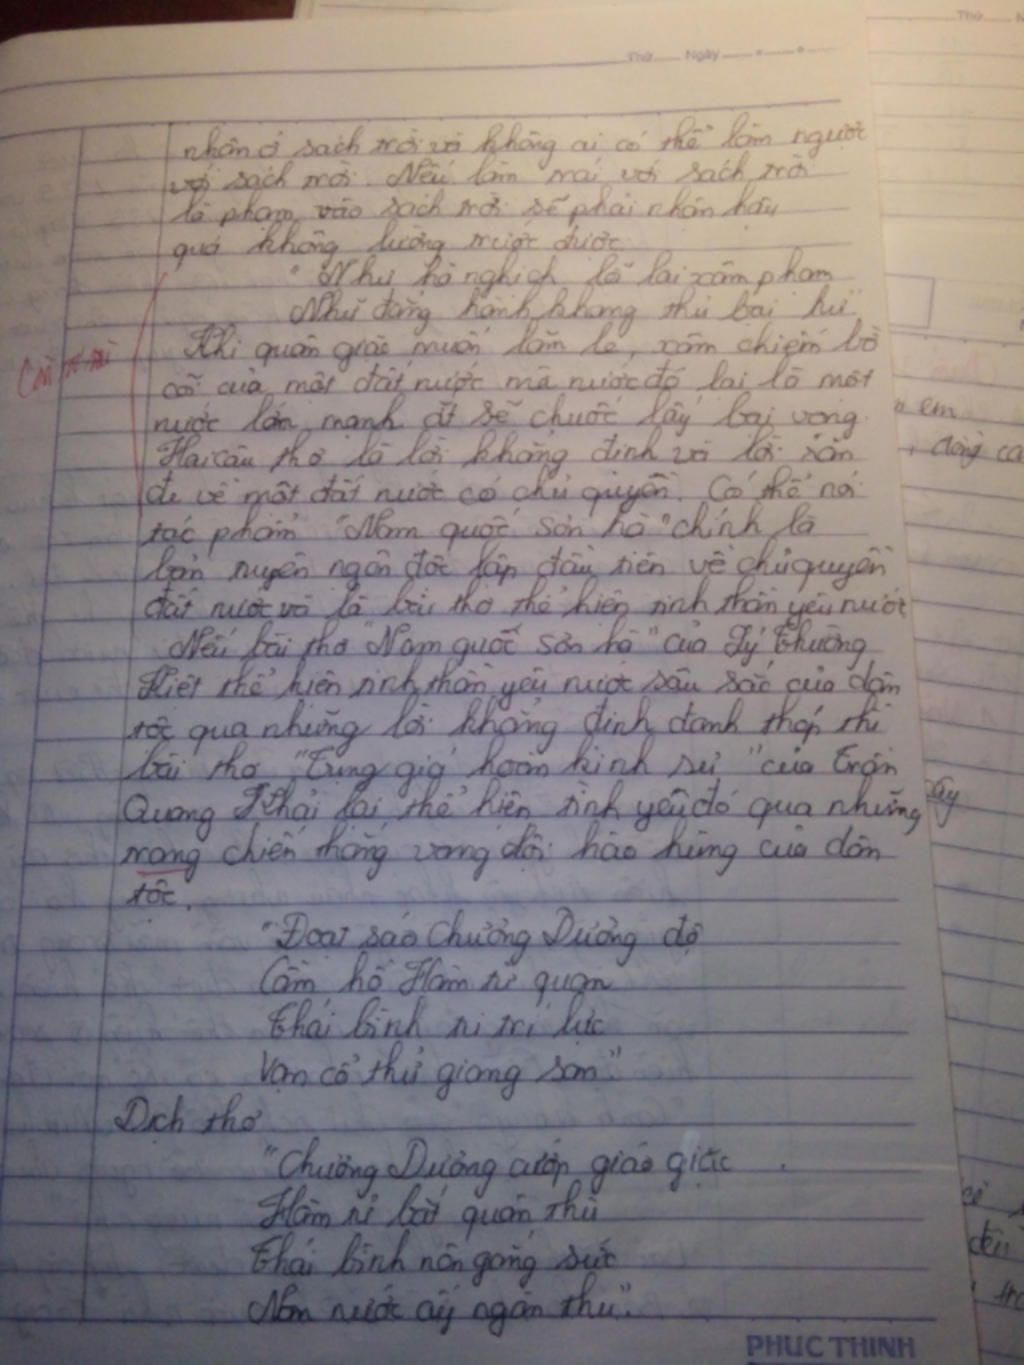 Thứ Ngày
nhân ở sách trời và không ai có thể làm ngược
với sách trời. Nếu làm trái với sách trời
là phạm vào sách trời sẽ phải nhận hậu
quả không lường trước được
"Như hà nghịch lỗ lai xâm phạm
Nhữ đẳng hành khang thủ bại hư"
Khi quân giặc muốn lăm le, xâm chiếm bờ
cõi của một đất nước mà nước đó lại là một
nước lớn mạnh ắt sẽ chuốc lấy bại vong.
Hai câu thơ là lời khẳng định và lời răn
đe về một đất nước có chủ quyền. Có thể nói
tác phẩm "Nam quốc sơn hà" chính là
bản tuyên ngôn độc lập đầu tiên về chủ quyền
đất nước và là bài thơ thể hiện tinh thần yêu nước
Nếu bài thơ "Nam quốc sơn hà" của Lý Thường
Kiệt thể hiện tinh thần yêu nước sâu sắc của dân
tộc qua những lời khẳng định đanh thép thì
bài thơ "Tụng giá hoàn kinh sư" của Trần
Quang Khải lại thể hiện tình yêu đó qua những
trang chiến thắng vang dội hào hùng của dân
tộc.
"Đoạt sáo Chương Dương độ
Cầm hồ Hàm tử quan
Thái bình tu trí lực
Vạn cổ thử giang san"
Dịch thơ
"Chương Dương cướp giáo giặc
Hàm tử bắt quân thù
Thái bình nên gắng sức
Non nước ấy ngàn thu".
PHUC THINH
em
dòng ca
ấy